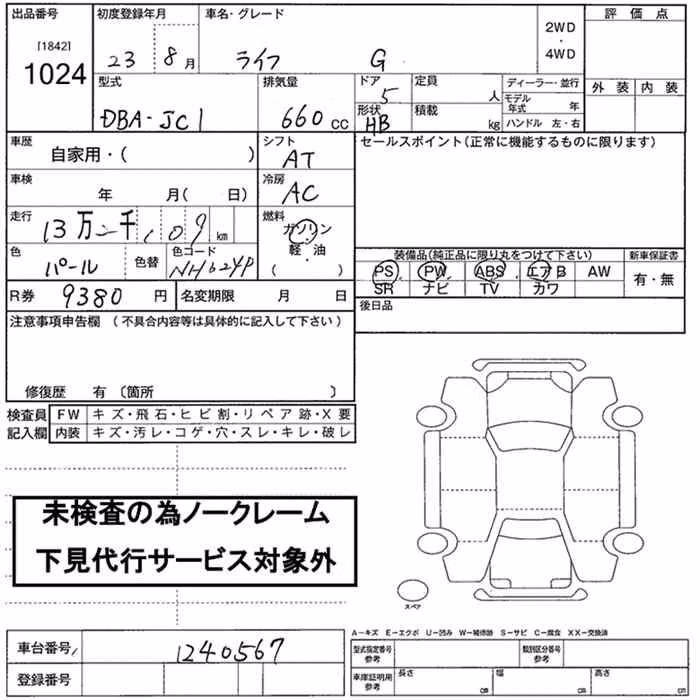 出品番号 初度登録年月 車名・グレード 評価点
[1842]
1024
23 8月 ライフ G
2WD
・
4WD
外装 内装
型式 排気量 ドア 定員 ディーラー・並行
DBA-JC1 660cc 5 人 モデル年式 年
形状 積載 ハンドル 左・右
HB kg
車歴 シフト セールスポイント(正常に機能するものに限ります)
自家用・( ) AT
車検 冷房
年 月( 日) AC
走行 燃料
13万 千 109 km ガソリン
軽・油
( )
色 色替 色コード
パール NH624P
装備品(純正品に限り丸をつけて下さい) 新車保証書
PS PW ABS エアB AW 有・無
SR ナビ TV カワ
R券 9380円 名変期限 月 日
後日品
注意事項申告欄 (不具合内容等は具体的に記入して下さい)
修復歴 有 〔箇所 〕
検査員 FW キズ・飛石・ヒビ割・リペア跡・X要
記入欄 内装 キズ・汚レ・コゲ・穴・スレ・キレ・破レ
未検査の為ノークレーム
下見代行サービス対象外
スペア
A-キズ E-エクボ U-凹み W-補修跡 S-サビ C-腐食 XX-交換済
車台番号 1240567
登録番号
型式指定番号 参考 類別区分番号 参考
車庫証明用 参考 長さ cm 幅 cm 高さ cm